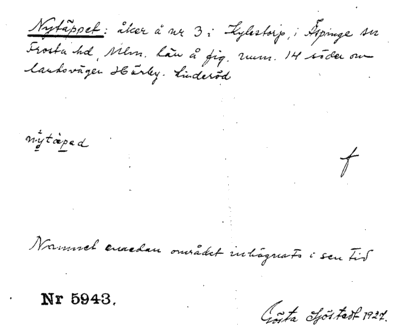 Nytäppet: åker å nr 3 i Kylestorp, i Äspinge sn
Frosta hd, Mlm. län å fig. num. 14 söder om
landsvägen Hörby. Linderöd
nytäpad
f
Namnet emedan området inhägnats i sen tid
Nr 5943.
Gösta Sjöstedt 1927.